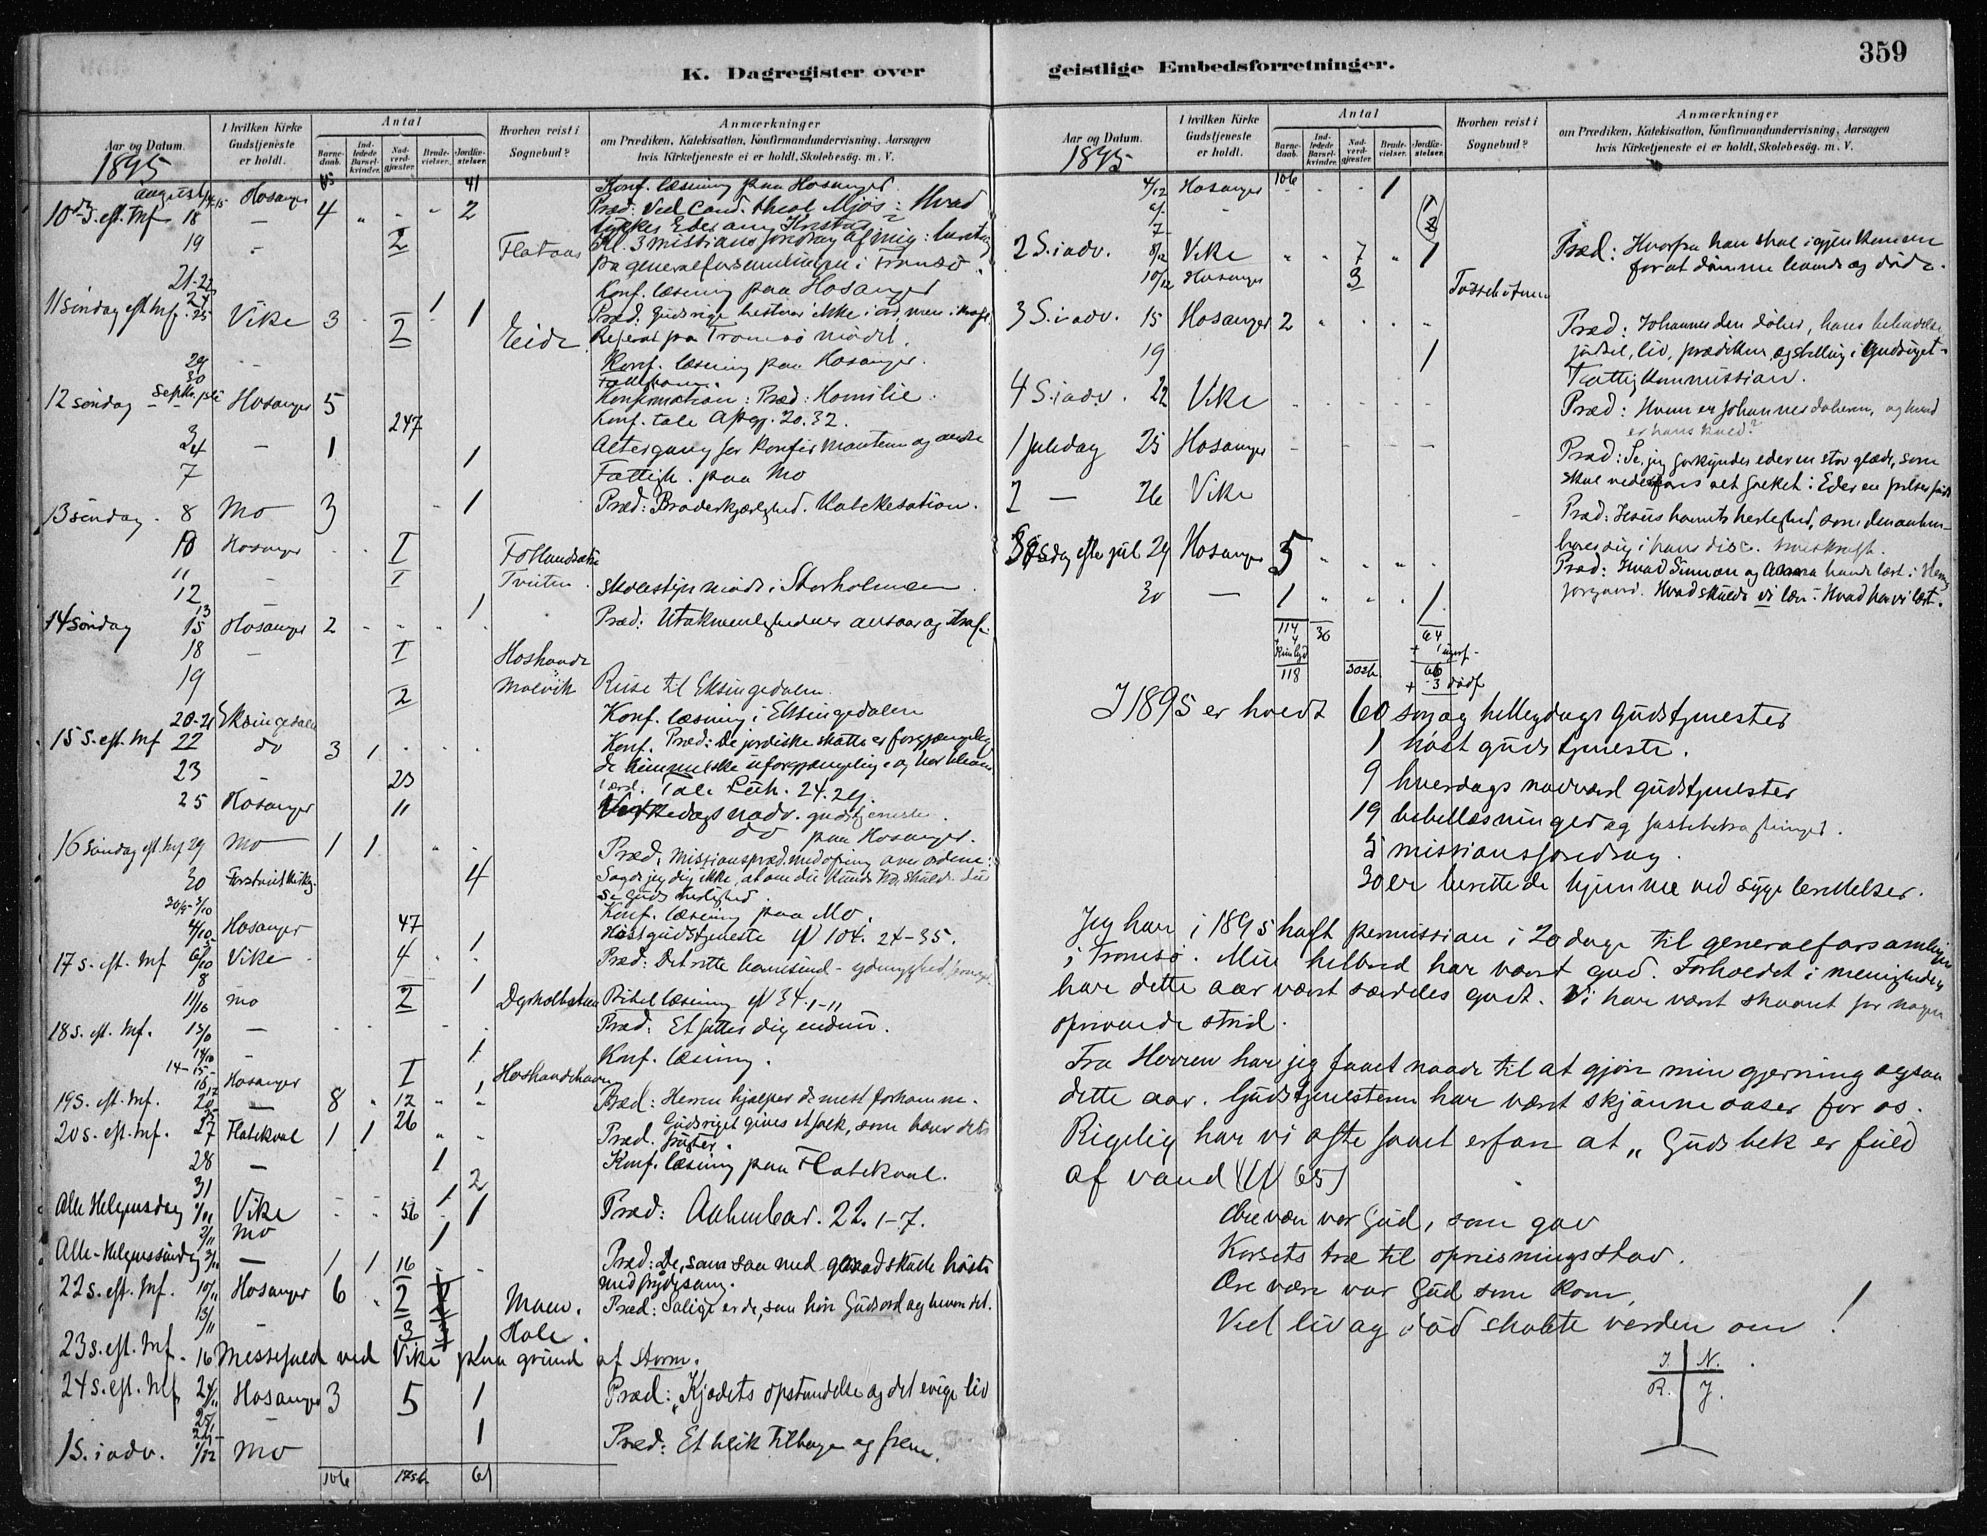 K. Dagregister over
Aar og Datum.
I hvilken Kirke Gudstjeneste er holdt.
Antal
Barnedaab.
Indledede Barselkvinder.
Nadverdgjæster.
Brudevielser.
Jordfæstelser.
Hvorhen reist i Sognebud?
Anmærkninger
om Prædiken, Katekisation, Konfirmandundervisning, Aarsagen
hvis Kirketjeneste ei er holdt, Skolebesøg. m. V.
1895
august 14-15 Hosanger 41 Konf. læsning paa Hosanger.
10de S. eft. Trf. 18 — 4 2 Præd: Ved Cand. theol Mjøs: Hvad
tykkes Eder om Kristus
19 2 Flataas Kl. 3 missionsforedrag af mig:
paa generalforsamlingen i Tromsø.
21-22 Konf. læsning paa Hosanger
24 1
11 søndag eft Trf. 25 Vike 3 2 1 Eide Præd: Guds rige bestaar ikke i ord, men i kraft.
Referat fra Tromsø mødet.
29 — Konf. læsning paa Hosanger.
30
12 søndag Septbr. 1ste Hosanger 5 Konfirmation: Præd: Homilie.
247 Konf. tale Ap. gj. 20.32.
3 — 1 Altergang for konfirmanterne og andre
4 1
7 Fattigk. paa Mo
13 søndag. 8 Mo 3 1 Præd: Broderkjærlighed. Katekesation.
10 Hosanger I
11 — I Tveiten
12 Skolestyremøde i Storholmen
13 1
14 søndag 15 Hosanger 2 Præd: Utaknemlighedens ansvar og straf.
18 — I Hoshovde
19 2 Molvik Reise til Eksingedalen.
20-21 Eksingedalen Konf. læsning i Eksingedalen
15 S. eft. Trf 22 do 3 1 Konf. Præd: De jordiske skatte er forgjængelig
de himmelske uforgjængelige og
23 — 23 Tale Luk. 24.29.
25 Hosanger 11 Verkedags nadv. gudstjeneste.
do paa Hosanger.
16 Søndag eft. Trf 29 Mo 1 1 Præd. Missionspræd. med ofring over ordene:
30 4 Sagde jeg dig ikke, at om du kunde tro, skulde du
se Guds herlighed.
30/9-2/10 Konf. læsning paa Mo.
4/10 Hosanger 47 Høstgudstjeneste ψ 104. 24-35.
5 1
17 S. eft. Trf 6/10 Vike 4 Præd: Det rette hovesind - ydmyghed
8 1
11/10 Mo 2 Bibellæsning ψ 34. 1-11
18 S. eft. Trf. 13/10 — Præd: Et fattes dig endnu.
14/10 1
14-15- — Konf. læsning.
16 Hosanger I Hoshovdehavn
17 1
19 S. eft. Trf. 20 — 8 12 Præd: Herren hjælper de mest forkomne.
25 26 Gudsriget gives et folk, som bærer dets
20 S. eft. Trf. 27 Flatekval 1 1 Præd. frugter.
28 — 1 Konf. læsning paa Flatekval.
31 2
Alle Helgensdag 1/11 Vike 56 1 1 Præd: Aabenbar. 22. 1-7.
2/11 Mo 1
Alle-Helgenssøndag 3/11 — 1 1 16 Præd: De, som saa med graad skulle høste
med frydesang.
22 S. eft. Trf. 10/11 Hosanger 6 2 Moen. Præd: Salige er de, som hør Guds ord og bevarer det.
13/11 — 3 Hole.
23 S. eft. Trf. 16 Messefald ved Vike paa grund af Storm.
24 S. eft. Trf. 24/11 Hosanger 3 5 1 Præd: Kjødets opstandelse og det evige liv
1
1 S. i adv. 1/12 Mo Præd: Et blik tilbage og frem.
106 61
geistlige Embedsforretninger.
359
Aar og Datum.
I hvilken Kirke Gudstjeneste er holdt.
Antal
Barnedaab.
Indledede Barselkvinder.
Nadverdgjæster.
Brudevielser.
Jordfæstelser.
Hvorhen reist i Sognebud?
Anmærkninger
om Prædiken, Katekisation, Konfirmandundervisning, Aarsagen
hvis Kirketjeneste ei er holdt, Skolebesøg. m. V.
1895
4/12 Hosanger 106 1
7
2 S. i adv. 8/12 Vike 7 1 Præd: Hvorfra han skal igjen komme
for at dømme levende og døde.
10/12 Hosanger 3
3 S. i adv. 15 Hosanger 2 Præd: Johannes den døber, hans
fødsel, liv, prædiken og stilling i Gudsriget.
19 1 Fattigkommission.
4 S. i adv. 22 Vike Præd: Hvem er Johannes døberen, og hvad
er hans kald?
1 juledag 25 Hosanger Præd: Se, jeg forkynder eder en stor glæde, som
skal vederfares alt folket: Eder en frelser født
2 — 26 Vike Præd: Jesus barnets herlighed, som den aaben-
barer sig i hans
Søndag efter jul 29 Hosanger 5 Præd: Hvad Simeon og Anna havde lært i Herrens
forgaard. Hvad skulde vi lære - Hvad har vi lært.
30 — 1 1
114 36 64
+ 4
118 66
+ 3 dødf
I 1895 er holdt 60 søn og helligdags Gudstjenester
1 høst gudstjeneste.
9 hverdags nadverd gudstjenester
19 bibellæsninger og fastebetragtninger.
5 missionsforedrag.
30 er berettede hjemme ved syge berettelser.
Jeg har i 1895 havt permission i 20 dage til generalforsamlingen
i Tromsø. Min helbred har været god. Forholdet i menigheden
har dette aar været særdeles godt. Vi har været skaanet for nogen
oprivende strid.
Fra Herren har jeg faaet naade til at gjøre min gjerning ogsaa
dette aar. Gudstjenesterne har været skjønne oaser for os.
Rigelig har vi ofte faaet erfare at „Guds bek er fuld
af vand (ψ 65)
Ære være vor Gud, som gav
Korsets træ til opreisningsstav.
Ære være vor Gud som kom,
Ved liv og død skabte verden om!
I. N.
R. J.